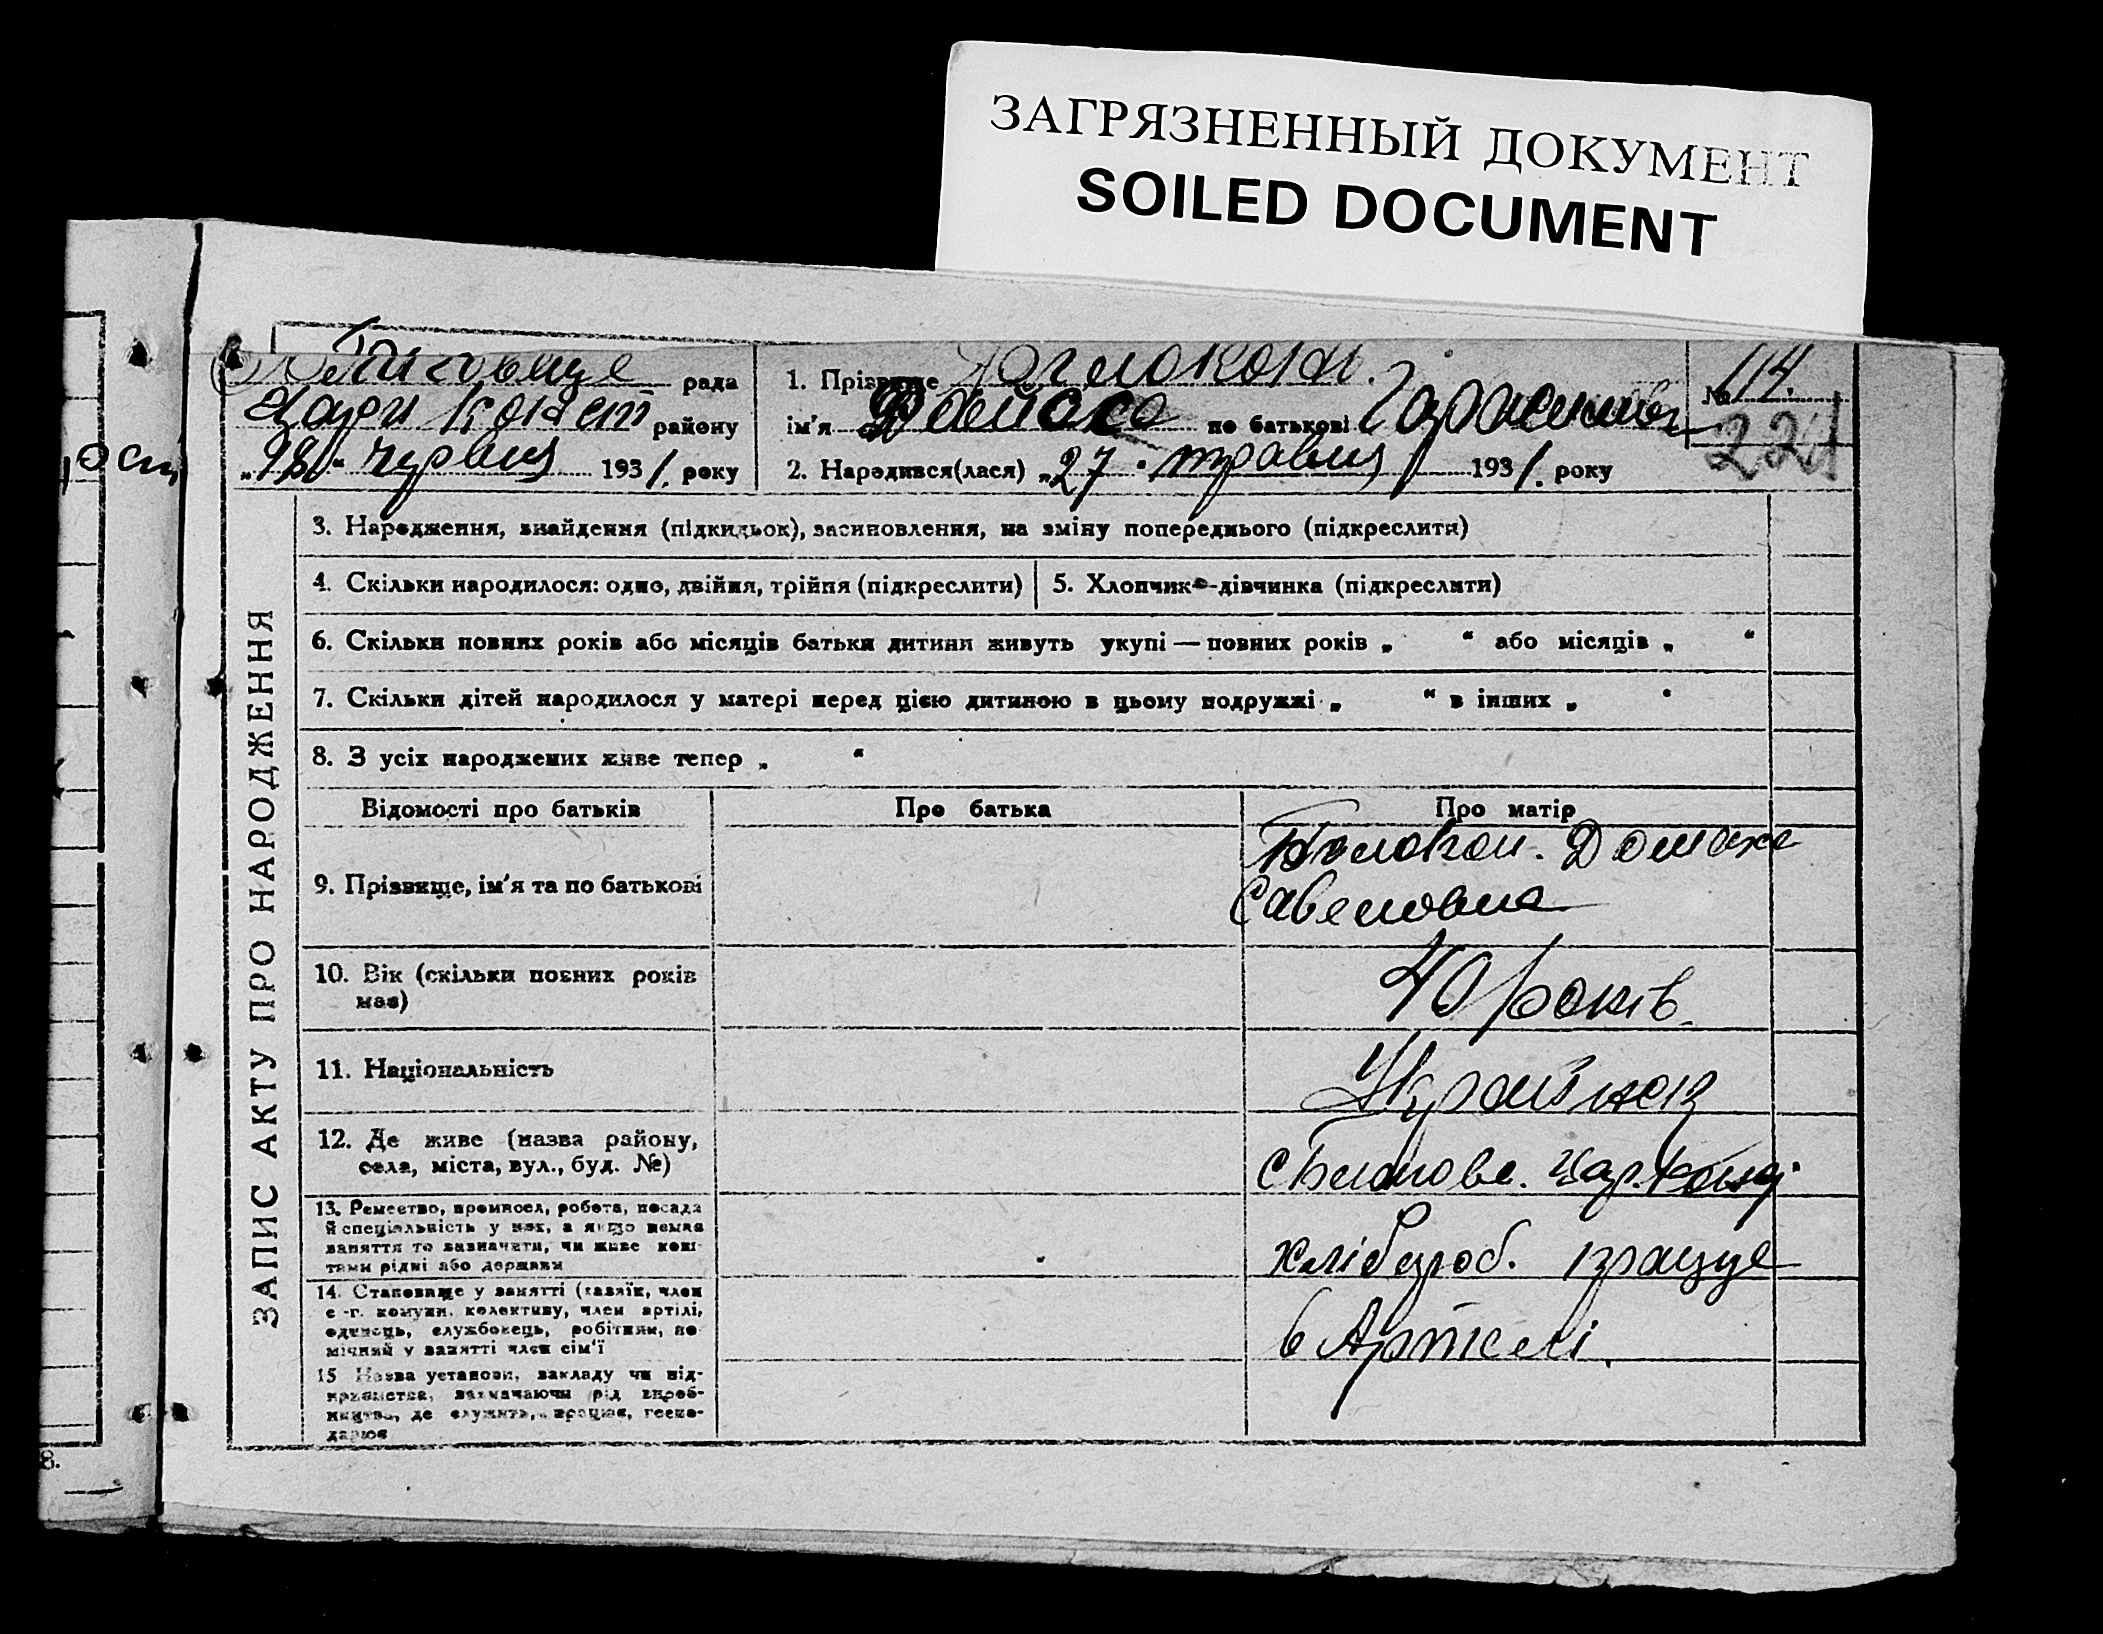 ЗАГРЯЗНЕННЫЙ ДОКУМЕНТ
SOILED DOCUMENT
рада
району
"18" червня 1931. року
1. Прізвище Білоконь.
ім'я по батькові
2. Народився(лася) "27" травня 1931. року
№ 114.
221
ЗАПИС АКТУ ПРО НАРОДЖЕННЯ
3. Народження, знайдення (підкидьок), засиновлення, на зміну попереднього (підкреслити)
4. Скільки народилося: одно, двійня, трійня (підкреслити)
5. Хлопчик—дівчинка (підкреслити)
6. Скільки повних років або місяців батьки дитини живуть укупі — повних років „ “ або місяців „ “
7. Скільки дітей народилося у матері перед цією дитиною в цьому подружжі „ “ в інших „ “
8. З усіх народжених живе тепер „ “
Відомості про батьків
Про батька
Про матір
9. Прізвище, ім'я та по батькові
Білокон. Домаха
Савеловна
10. Вік (скільки повних років
має)
40 років.
11. Національність
Українка
12. Де живе (назва району,
села, міста, вул., буд. №)
13. Ремество, промисел, робота, посада
й спеціяльність у них, а якщо немає
заняття то зазначити, чи живе кош-
тами рідні або держави
хлібороб. працує
14. Становище у занятті (хазяїн, член
с.-г. комуни, колективу, член артілі,
одинець, службовець, робітник, по-
мічний у занятті член сім'ї
в Артілі.
15 Назва установи, закладу чи під-
приємства, зазначаючи рід вироб-
ництва, де служить, працює, госпо-
дарює
8.